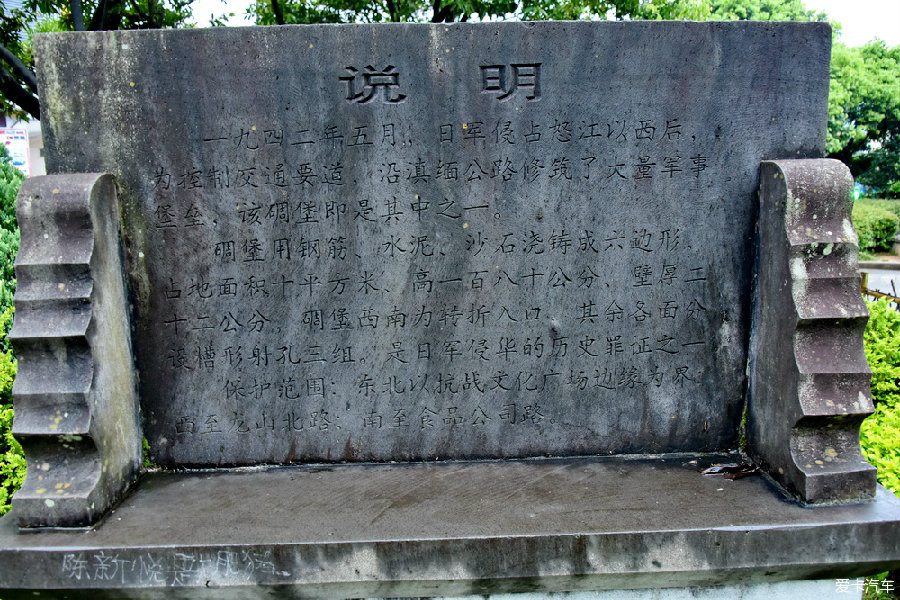 说明
一九四二年五月，日军侵占怒江以西后，
为控制交通要道，沿滇缅公路修筑了大量军事
堡垒，该碉堡即是其中之一。
碉堡用钢筋、水泥、沙石浇铸成六边形，
占地面积十平方米、高一百八十公分，壁厚二
十二公分，碉堡西南为转折入口，其余各面分
设槽形射孔三组。是日军侵华的历史罪证之一
保护范围：东北以抗战文化广场边缘为界，
西至龙山北路，南至食品公司路。
陈新悦
爱卡汽车